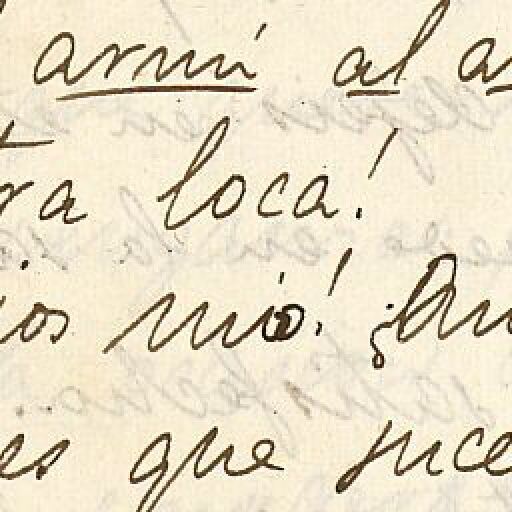 armú al a
ra loca!
ios mío! ¿Qu
es que suce